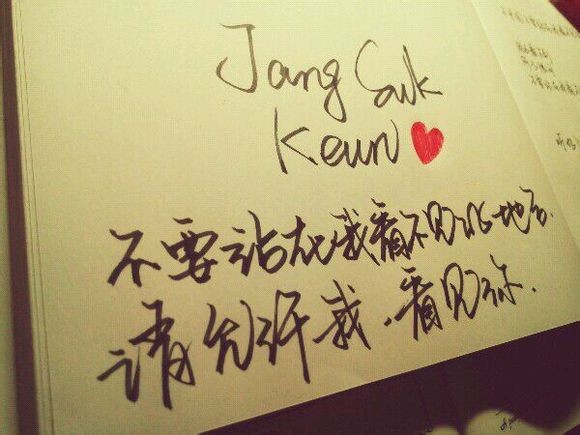 Jang Suk
Keun
不要站在我看不见的地方.
请允许我.看见你.